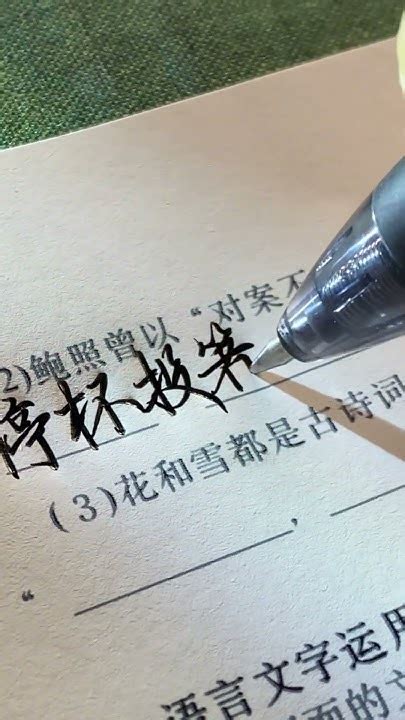 2)鲍照曾以“对案不
停杯投箸
(3)花和雪都是古诗词
，
“
语言文字运用
面的文